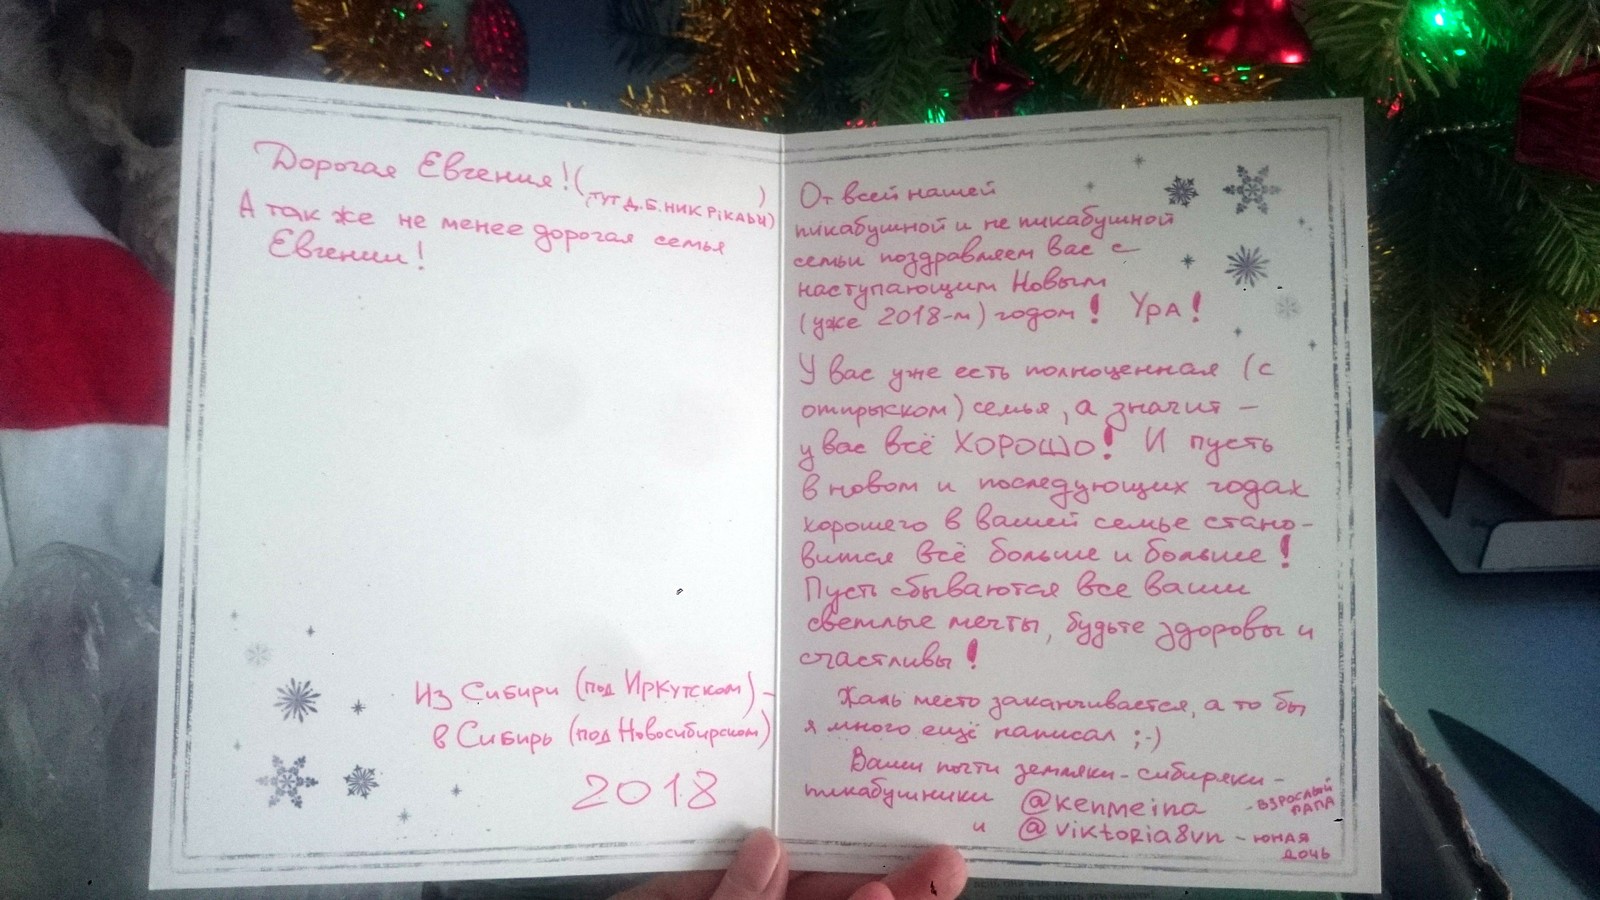 Дорогая Евгения! (тут д.б. ник PiKABU)
А так же не менее дорогая семья
Евгении!
Из Сибири (под Иркутском) -
в Сибирь (под Новосибирском)
2018
От всей нашей
пикабушной и не пикабушной
семьи поздравляем Вас с
наступающим Новым
(уже 2018-м) годом! УРА!
У вас уже есть полноценная (с
отпрыском) семья, а значит -
у вас всё ХОРОШО! И пусть
в новом и последующих годах
хорошего в вашей семье стано-
вится всё больше и больше!
Пусть сбываются все ваши
светлые мечты, будьте здоровы и
счастливы!
Жаль место заканчивается, а то бы
я много ещё написал ;-)
Ваши почти земляки-сибиряки-
пикабушники @kenmeina - ВЗРОСЛЫЙ ПАПА
и @viktoria8vn - ЮНАЯ ДОЧЬ